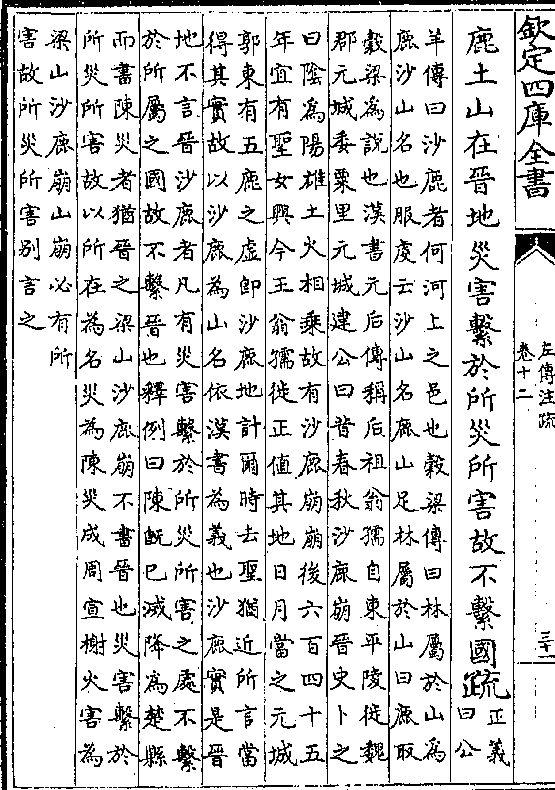 欽定四庫全書
左傳注疏
卷十二
三十一
鹿土山在晉地災害繫於所災所害故不繫國疏正義曰公
羊傳曰沙鹿者何河上之邑也穀梁傳曰林屬於山為
鹿沙山名也服虔云沙山名鹿山足林屬於山曰鹿取
穀梁為說也漢書元后傳稱后祖翁孺自東平陵徙魏
郡元城委粟里元城建公曰昔春秋沙鹿崩晉史卜之
曰陰為陽雄土火相乘故有沙鹿崩崩後六百四十五
年宜有聖女興今王翁孺徙正值其地日月當之元城
郭東有五鹿之虛即沙鹿地計爾時去聖猶近所言當
得其實故以沙鹿為山名依漢書為義也沙鹿實是晉
地不言晉沙鹿者凡有災害繫於所災所害之處不繫
於所屬之國故不繫晉也釋例曰陳既已滅降為楚縣
而書陳災者猶晉之梁山沙鹿崩不書晉也災害繫於
所災所害故以所在為名災為陳災成周宣榭火害為
梁山沙鹿崩山崩必有所
害故所災所害別言之